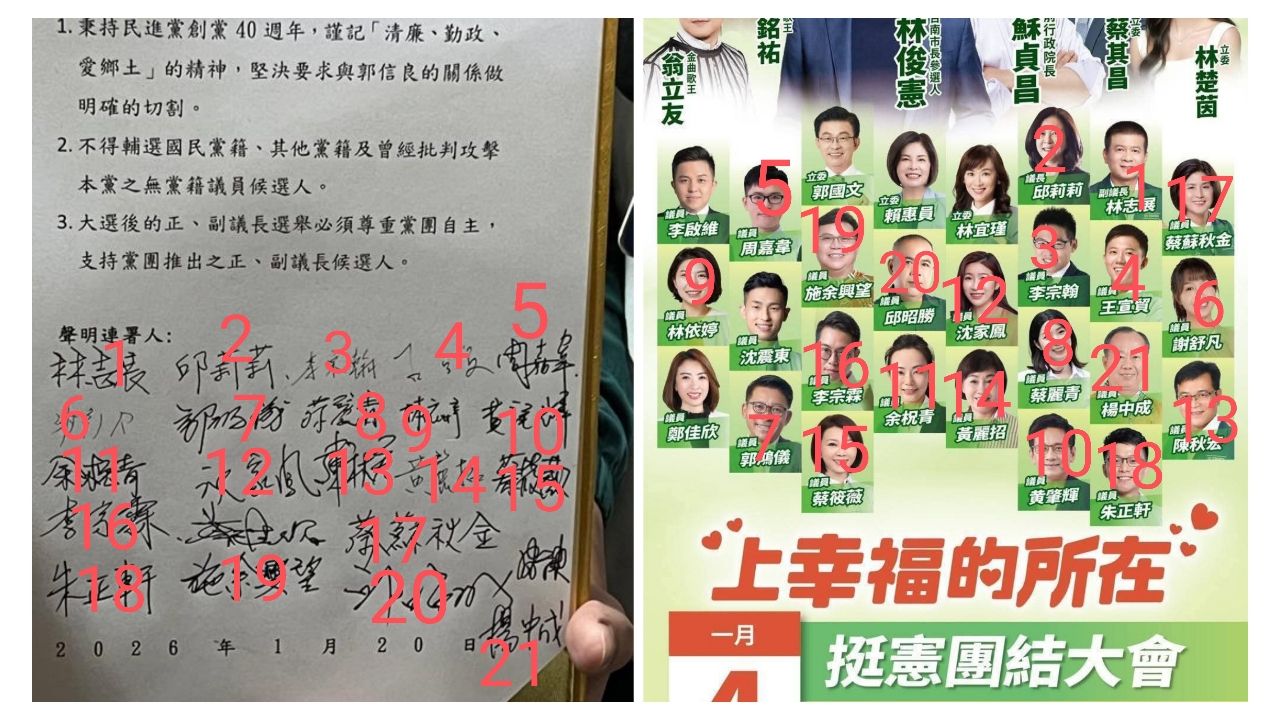 1. 秉持民進黨創黨 40 週年，謹記「清廉、勤政、
愛鄉土」的精神，堅決要求與郭信良的關係做
明確的切割。
2. 不得輔選國民黨籍、其他黨籍及曾經批判攻擊
本黨之無黨籍議員候選人。
3. 大選後的正、副議長選舉必須尊重黨團自主，
支持黨團推出之正、副議長候選人。
聲明連署人：
林志展 邱莉莉 李宗翰 周嘉韋
1 2 3 4 5
郭鴻儀 蔡麗青 林依婷 黃肇輝
6 7 8 9 10
余祝青 沈家鳳 陳秋宏 黃麗招 蔡筱薇
11 12 13 14 15
李宗霖 蔡蘇秋金
16 17
朱正軒 施余興望
18 19 20
楊中成
21
2026 年 1 月 20 日
金曲歌王
翁立友
歌王
銘祐
台南市長參選人
林俊憲
前行政院長
蘇貞昌
立委
蔡其昌
立委
林楚茵
議員 李啟維
議員 周嘉韋 5
立委 郭國文
立委 賴惠員
立委 林宜瑾
議長 邱莉莉 2
副議長 林志展 1
議員 蔡蘇秋金 17
議員 林依婷 9
議員 沈震東
議員 施余興望 19
議員 邱昭勝 20
議員 沈家鳳 12
議員 李宗翰 3
議員 王宣貿 4
議員 謝舒凡 6
議員 鄭佳欣
議員 郭鴻儀 7
議員 李宗霖 16
議員 余祝青 11
議員 黃麗招 14
議員 蔡麗青 8
議員 楊中成 21
議員 陳秋宏 13
議員 蔡筱薇 15
議員 黃肇輝 10
議員 朱正軒 18
上幸福的所在
一月
4
挺憲團結大會